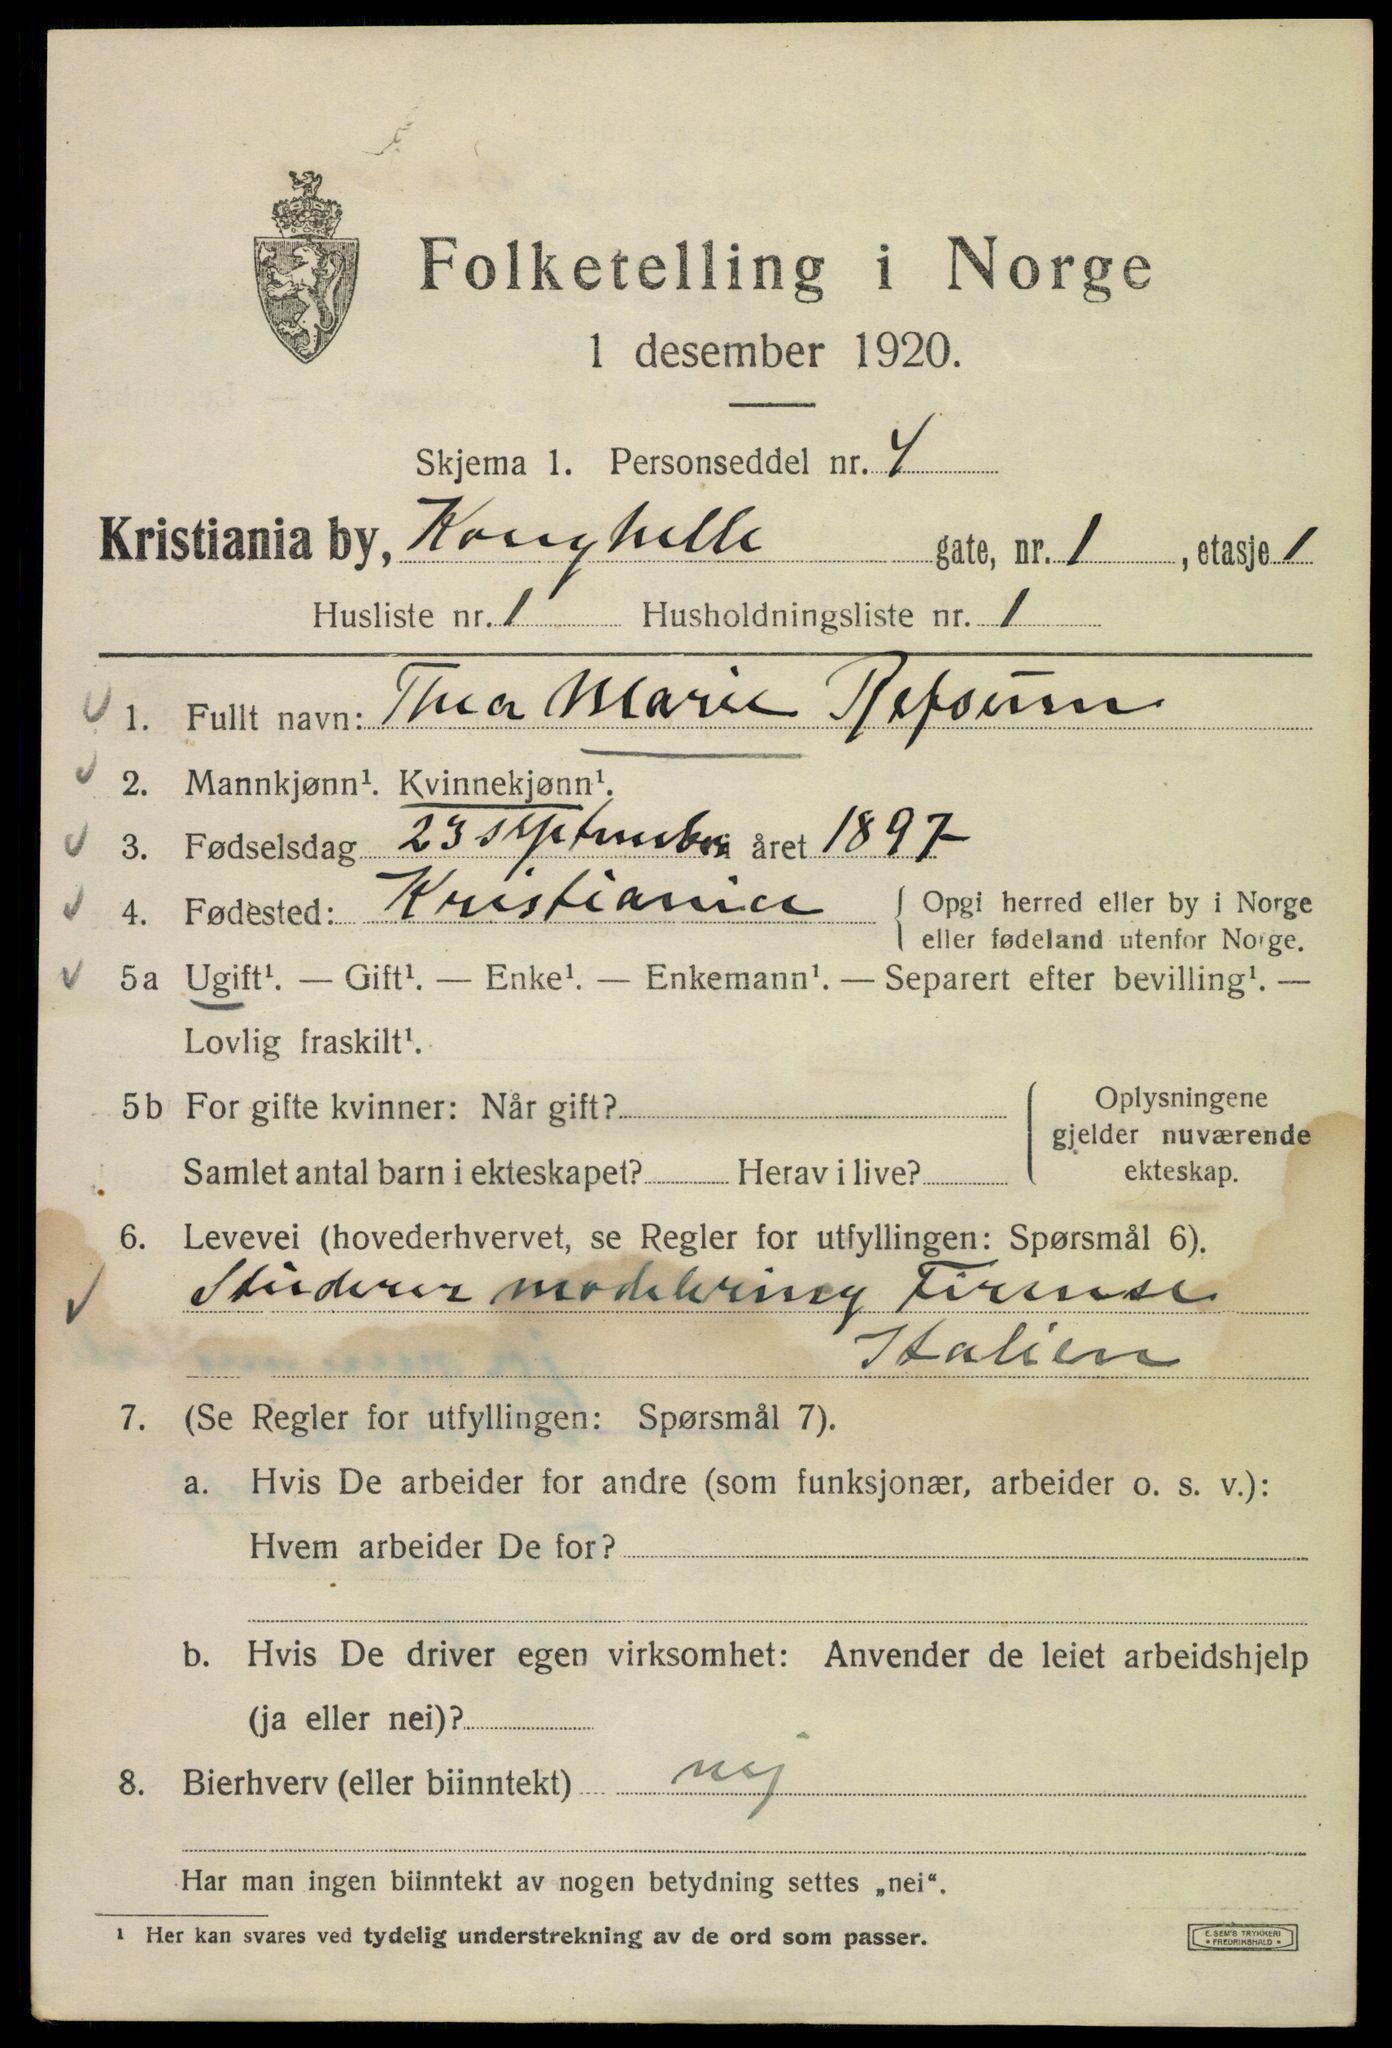 Folketelling i Norge
1 desember 1920.
Skjema 1. Personseddel nr. 4
Kristiania by, Konghelle gate, nr. 1, etasje 1
Husliste nr. 1 Husholdningsliste nr. 1
1. Fullt navn: Thea Marie Refsum
2. Mannkjønn¹. Kvinnekjønn¹.
3. Fødselsdag 23 september i året 1897
4. Fødested: Kristiania { Opgi herred eller by i Norge
eller fødeland utenfor Norge.
5a Ugift¹. — Gift¹. — Enke¹. — Enkemann¹. — Separert efter bevilling¹. —
Lovlig fraskilt¹.
5b For gifte kvinner: Når gift? { Oplysningene
gjelder nuværende
Samlet antal barn i ekteskapet? Herav i live? ekteskap.
6. Levevei (hovederhvervet, se Regler for utfyllingen: Spørsmål 6).
Studerer modelering Firense
Italien
7. (Se Regler for utfyllingen: Spørsmål 7).
a. Hvis De arbeider for andre (som funksjonær, arbeider o. s. v.):
Hvem arbeider De for?
b. Hvis De driver egen virksomhet: Anvender de leiet arbeidshjelp
(ja eller nei)?
8. Bierhverv (eller biinntekt) nej
Har man ingen biinntekt av nogen betydning settes „nei“.
¹ Her kan svares ved tydelig understrekning av de ord som passer.
E. SEM'S TRYKKERI
• FREDRIKSHALD •